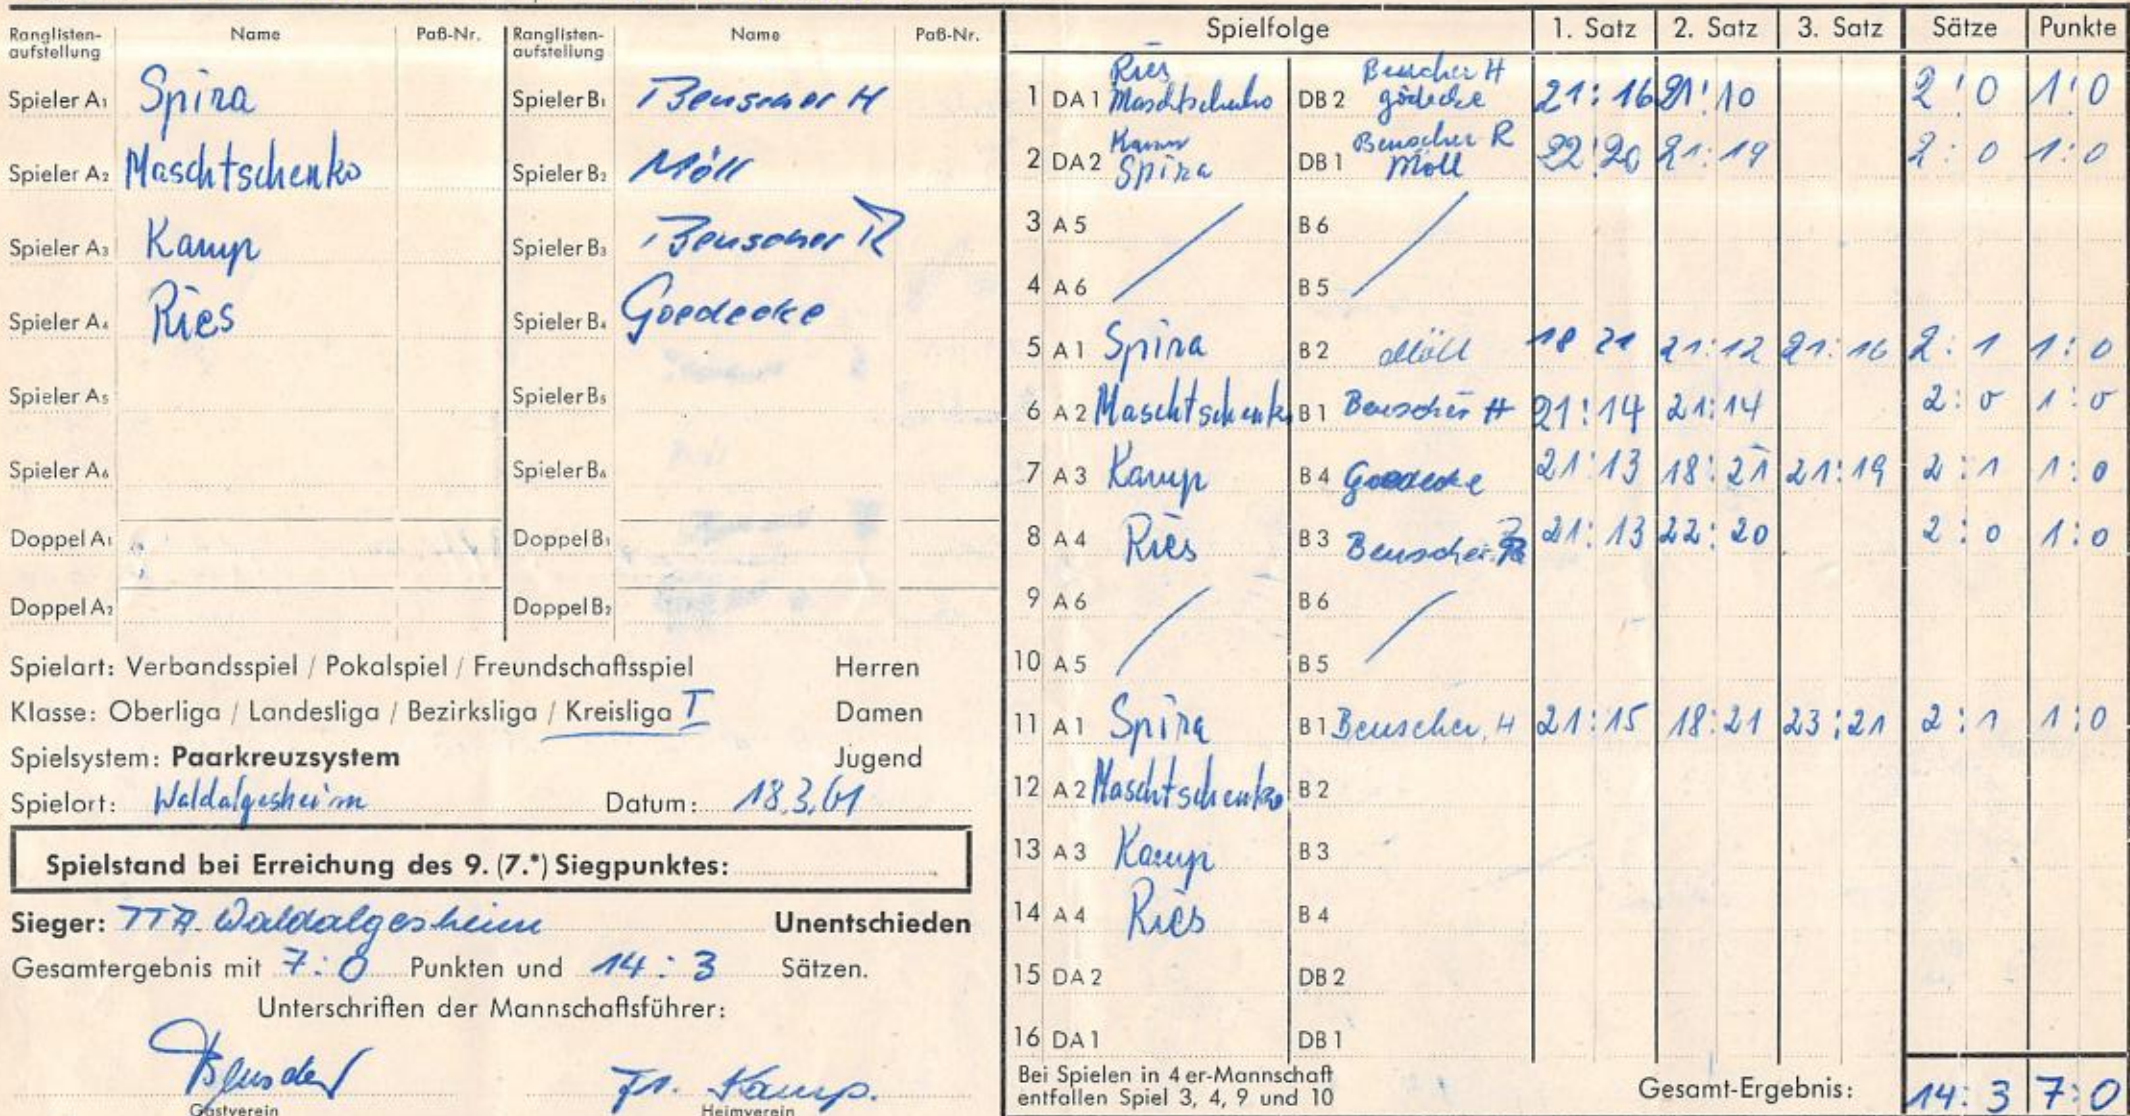 Ranglisten-aufstellung Name Paß-Nr. Ranglisten-aufstellung Name Paß-Nr.
Spieler A1 Spira Spieler B1 Beuscher H
Spieler A2 Maschtschenko Spieler B2 Möll
Spieler A3 Kamp Spieler B3 Beuscher R
Spieler A4 Ries Spieler B4 Goedecke
Spieler A5 Spieler B5
Spieler A6 Spieler B6
Doppel A1 Doppel B1
Doppel A2 Doppel B2
Spielart: Verbandsspiel / Pokalspiel / Freundschaftsspiel Herren
Klasse: Oberliga / Landesliga / Bezirksliga / Kreisliga I Damen
Spielsystem: Paarkreuzsystem Jugend
Spielort: Waldalgesheim Datum: 18.3.61
Spielstand bei Erreichung des 9. (7.*) Siegpunktes:
Sieger: TTA. Waldalgesheim Unentschieden
Gesamtergebnis mit 7:0 Punkten und 14:3 Sätzen.
Unterschriften der Mannschaftsführer:
Beuscher Fr. Kamp.
Gastverein Heimverein
Spielfolge 1. Satz 2. Satz 3. Satz Sätze Punkte
Ries Beuscher H
1 DA1 Maschtschenko DB2 gödecke 21:16 21:10 2:0 1:0
Kamp Beuscher R
2 DA2 Spira DB1 Möll 22:20 21:19 2:0 1:0
3 A5 B6
4 A6 B5
5 A1 Spira B2 Möll 18 21 21:12 21:16 2:1 1:0
6 A2 Maschtschenko B1 Beuscher H 21:14 21:14 2:0 1:0
7 A3 Kamp B4 Goedecke 21:13 18:21 21:19 2:1 1:0
8 A4 Ries B3 Beuscher R 21:13 22:20 2:0 1:0
9 A6 B6
10 A5 B5
11 A1 Spira B1 Beuscher, H 21:15 18:21 23:21 2:1 1:0
12 A2 Maschtschenko B2
13 A3 Kamp B3
14 A4 Ries B4
15 DA2 DB2
16 DA1 DB1
Bei Spielen in 4er-Mannschaft
entfallen Spiel 3, 4, 9 und 10
Gesamt-Ergebnis: 14:3 7:0